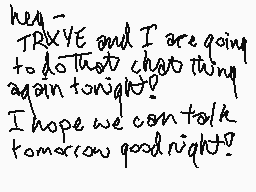 hey -
TRXYE and I are going
to do that chat thing
again tonight!
I hope we can talk
tomorrow goodnight!